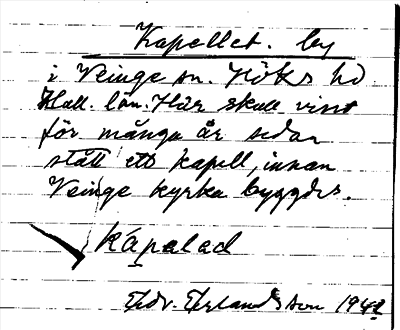 Kapellet. by
i Veinge sn. Höks hd
Hall. län. Här skall visst
för många år sedan
stått ett kapell, innan
Veinge kyrka byggdes.
kápalad
Edv. Erlandsson 1942